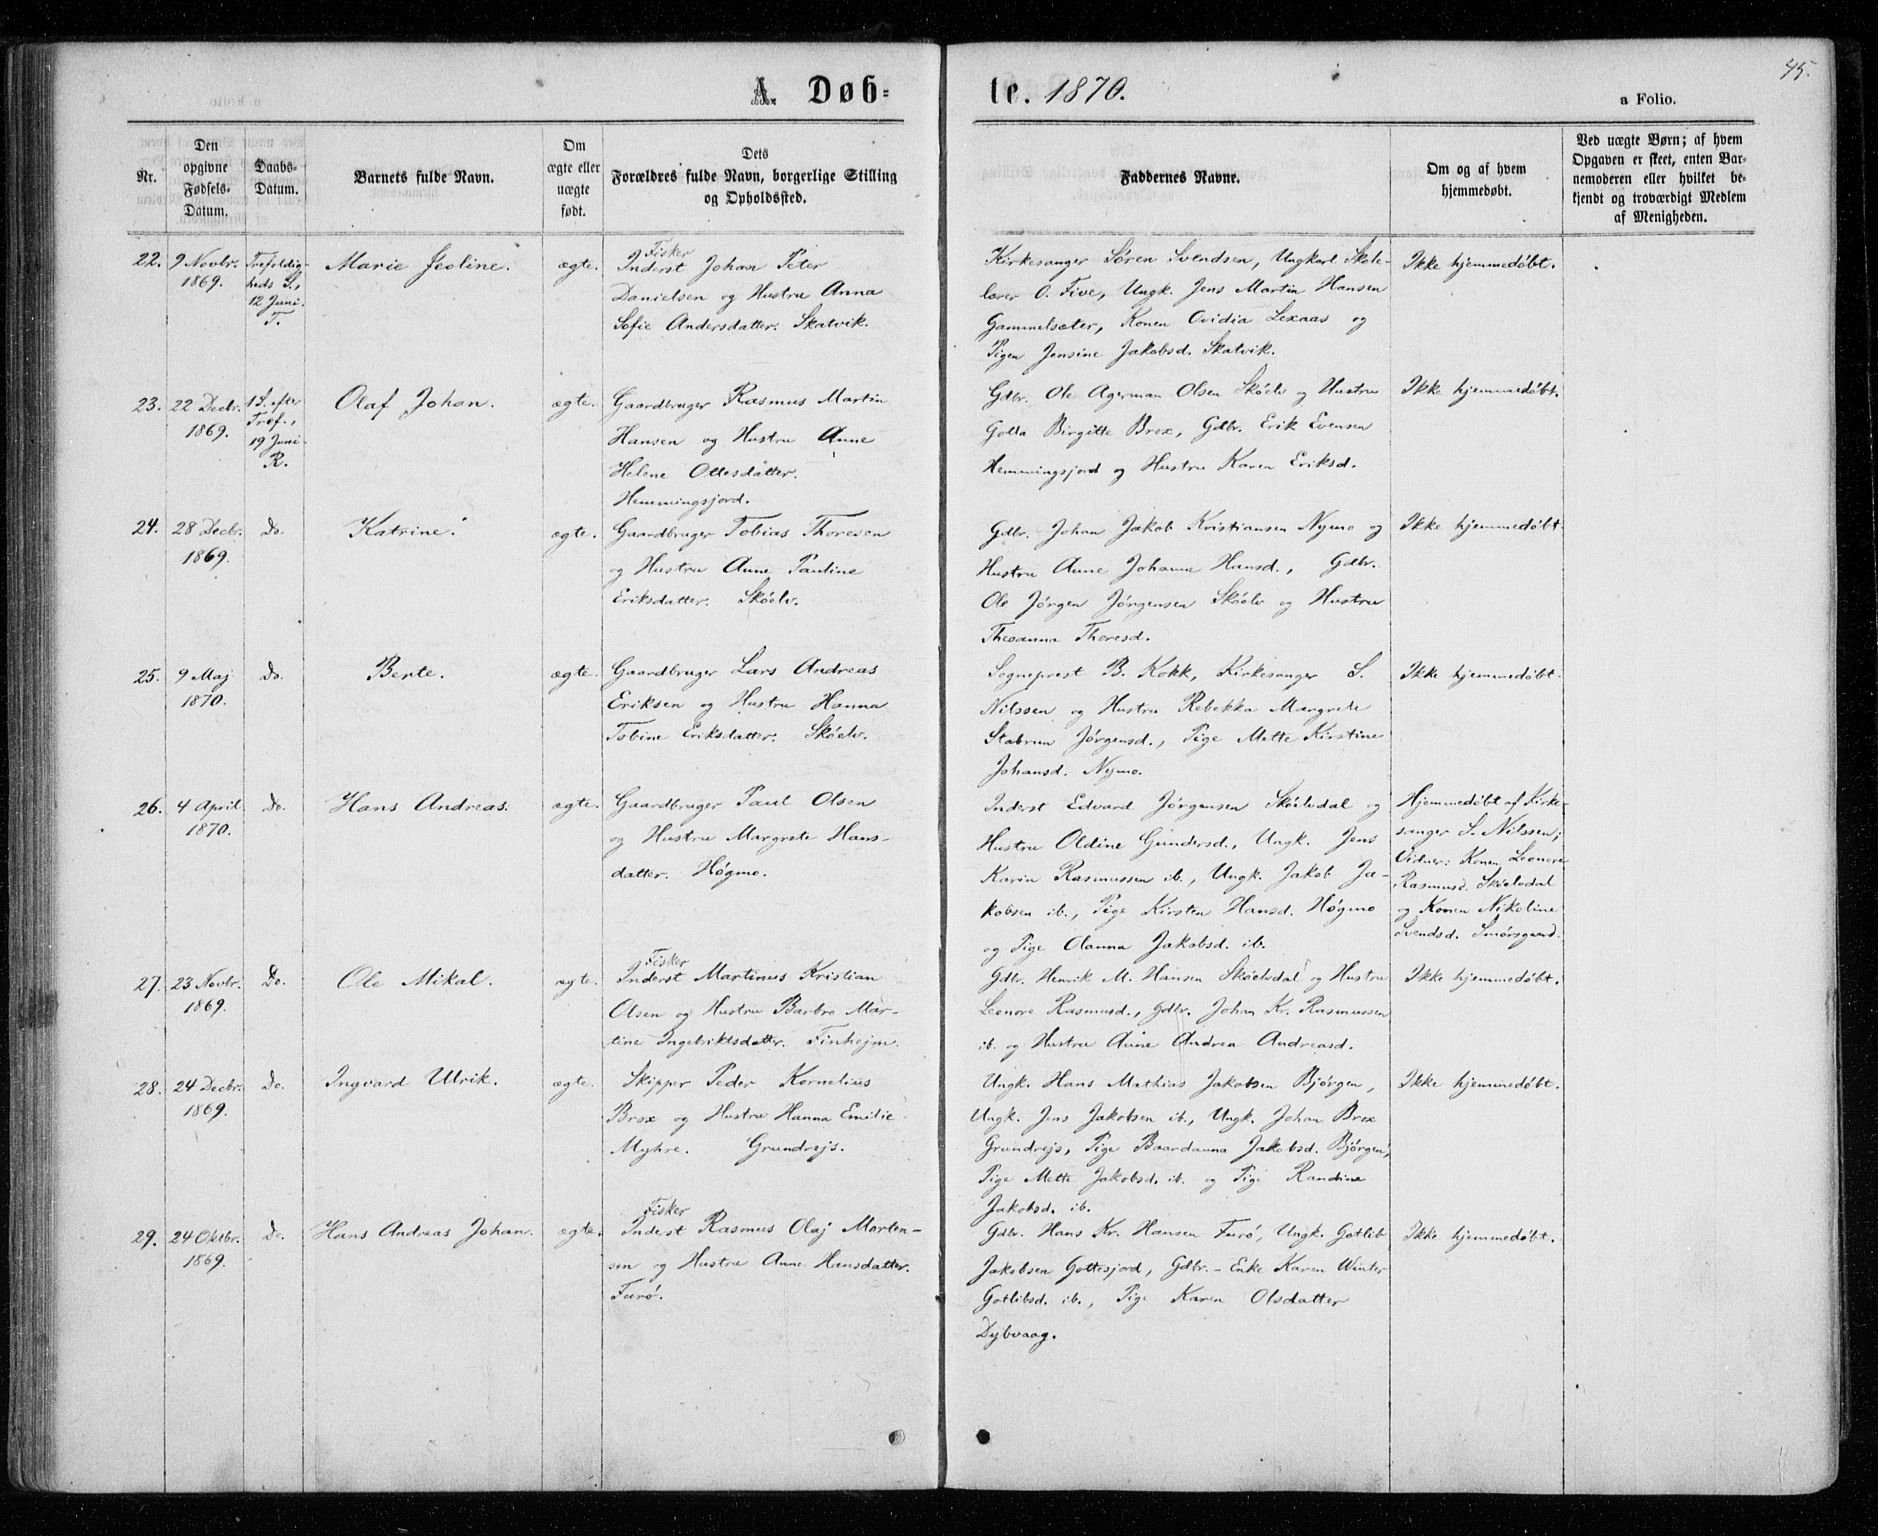 45.
A. Døb= te. 1870.
a Folio.
Nr.
Den opgivne Fødsels-Datum.
Daabs-Datum.
Barnets fulde Navn.
Om ægte eller uægte født.
Dets Forældres fulde Navn, borgerlige Stilling og Opholdssted.
Faddernes Navne.
Om og af hvem hjemmedøbt.
Ved uægte Børn; af hvem Opgaven er skeet, enten Barnemoderen eller hvilket bekjendt og troværdigt Medlem af Menigheden.
22.
9 Novbr.
1869.
Trefoldig-
heds S.,
12 Juni.
T.
Marie Jeoline.
ægte.
Fisker
Inderst Johan Peter
Danielsen og Hustru Anna
Sofie Andersdatter. Skatvik.
Kirkesanger Søren Svendsen, Ungkarl Skole-
lærer O. Five, Ungk. Jens Martin Hansen
Gammelsæter, Konen Ovidia Lexaas og
Pigen Jensine Jakobsd. Skatvik.
Ikke hjemmedøbt.
23.
22 Decbr.
1869.
1 S. efter
Tref.,
19 Juni.
R.
Olaf Johan.
ægte.
Gaardbruger Rasmus Martin
Hansen og Hustru Anne
Helene Ottesdatter.
Hemmingsjord.
Gdbr. Ole Agerman Olsen Skóelv og Hustru
Golla Birgitte Brox, Gdbr. Erik Evensen
Hemmingsjord og Hustru Karen Eriksd.
Ikke hjemmedøbt.
24.
28 Decbr.
1869.
Do.
Katrine.
ægte.
Gaardbruger Tobias Thoresen
og Hustru Anne Pauline
Eriksdatter. Skóelv.
Gdbr. Johan Jakob Kristiansen Nymo og
Hustru Anne Johanne Hansd., Gdbr.
Ole Jórgen Jórgensen Skóelv og Hustru
Theoanna Thoresd.
Ikke hjemmedøbt.
25.
9 Maj
1870.
Do.
Berte.
ægte.
Gaardbruger Lars Andreas
Eriksen og Hustru Hanna
Tobine Eriksdatter. Skóelv.
Sogneprest B. Kokk, Kirkesanger S.
Nilssen og Hustru Rebekka Margrete
Stabrun Jórgensd., Pige Mette Kirstine
Johansd. Nymo.
Ikke hjemmedøbt.
26.
4 April
1870.
Do.
Hans Andreas.
ægte.
Gaardbruger Paul Olsen
og Hustru Margrete Hans-
datter. Høgmo.
Inderst Edvard Jórgensen Skóelvdal og
Hustru Oldine Gundersd., Ungk. Jens
Karin Rasmussen ib., Ungk. Jakob Ja-
kobsen ib., Pige Kirsten Hansd. Høgmo
og Pige Olanna Jakobsd. ib.
Hjemmedøbt af Kirke-
sanger S. Nilssen;
Vidner: Konen Leonore
Rasmusd. Skóelvdal
og Konen Nikoline
Svendsd. Smórsgaard.
27.
23 Novbr.
1869.
Do.
Ole Mikal.
ægte.
Fisker
Inderst Martinus Kristian
Olsen og Hustru Barbro Mar-
tine Ingebriktsdatter. Finhejm.
Gdbr. Henrik M. Hansen Skóelvdal og Hustru
Leonore Rasmusd., Gdbr. Johan Kr. Rasmussen
ib. og Hustru Anne Andrea Andreasd.
Ikke hjemmedøbt.
28.
24 Decbr.
1869.
Do.
Ingvard Ulrik.
ægte.
Skipper Peder Kornelius
Brox og Hustru Hanna Emilie
Myhre. Grundrejs.
Ungk. Hans Mathias Jakobsen Bjórgen,
Ungk. Jens Jakobsen ib., Ungk. Johan Brox
Grundrejs, Pige Baardanna Jakobsd. Bjórgen,
Pige Mette Jakobsd. ib. og Pige Randine
Jakobsd. ib.
Ikke hjemmedøbt.
29.
24 Oktbr.
1869.
Do.
Hans Andreas Johan.
ægte.
Fisker
Inderst Rasmus Olaj Morten-
sen og Hustru Anne Hansdatter.
Furó.
Gdbr. Hans Kr. Hansen Furó, Ungk. Gotlib
Jakobsen Gottesjord, Gdbr.-Enke Karen Winter
Gotlibsd. ib., Pige Karen Olsdatter
Dybvaag.
Ikke hjemmedøbt.